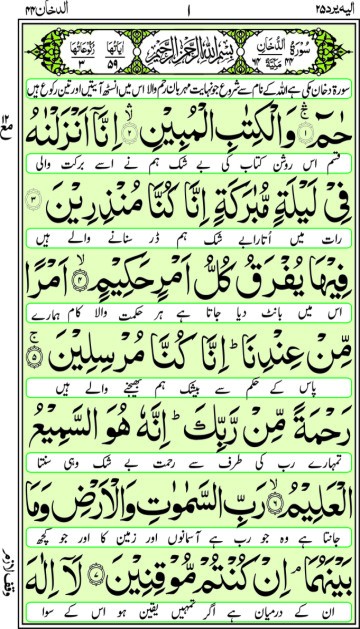 الیه یرد ۲۵ ۱ الدخان ۴۴
سُوْرَةُ الدُّخَانِ مَكِّيَّةٌ ۴۴ ۶۴ بِسْمِ اللهِ الرَّحْمٰنِ الرَّحِيْمِ اٰيَاتُهَا ۵۹ رُكُوْعَاتُهَا ۳
سورۃ دخان مکی ہے اللہ کے نام سے شروع جو نہایت مہربان رحم والا اس میں انسٹھ آیتیں اور تین رکوع ہیں
حٰمٓ ۚ﴿۱﴾ وَالْكِتٰبِ الْمُبِيْنِ ۙ﴿۲﴾ اِنَّاۤ اَنْزَلْنٰهُ
قسم اس روشن کتاب کی بے شک ہم نے اسے برکت والی
فِيْ لَيْلَةٍ مُّبٰرَكَةٍ اِنَّا كُنَّا مُنْذِرِيْنَ ﴿۳﴾
رات میں اُتارا بے شک ہم ڈر سنانے والے ہیں
فِيْهَا يُفْرَقُ كُلُّ اَمْرٍ حَكِيْمٍ ۙ﴿۴﴾ اَمْرًا
اس میں بانٹ دیا جاتا ہے ہر حکمت والا کام ہمارے
مِّنْ عِنْدِنَا ؕ اِنَّا كُنَّا مُرْسِلِيْنَ ۚ﴿۵﴾
پاس کے حکم سے بیشک ہم بھیجنے والے ہیں
رَحْمَةً مِّنْ رَّبِّكَ ؕ اِنَّهٗ هُوَ السَّمِيْعُ
تمہارے رب کی طرف سے رحمت بے شک وہی سنتا
الْعَلِيْمُ ۙ﴿۶﴾ رَبِّ السَّمٰوٰتِ وَالْاَرْضِ وَمَا
جانتا ہے وہ جو رب ہے آسمانوں اور زمین کا اور جو کچھ
بَيْنَهُمَا ۘ اِنْ كُنْتُمْ مُّوْقِنِيْنَ ﴿۷﴾ لَاۤ اِلٰهَ
ان کے درمیان ہے اگر تمہیں یقین ہو اس کے سوا
وقف لازم